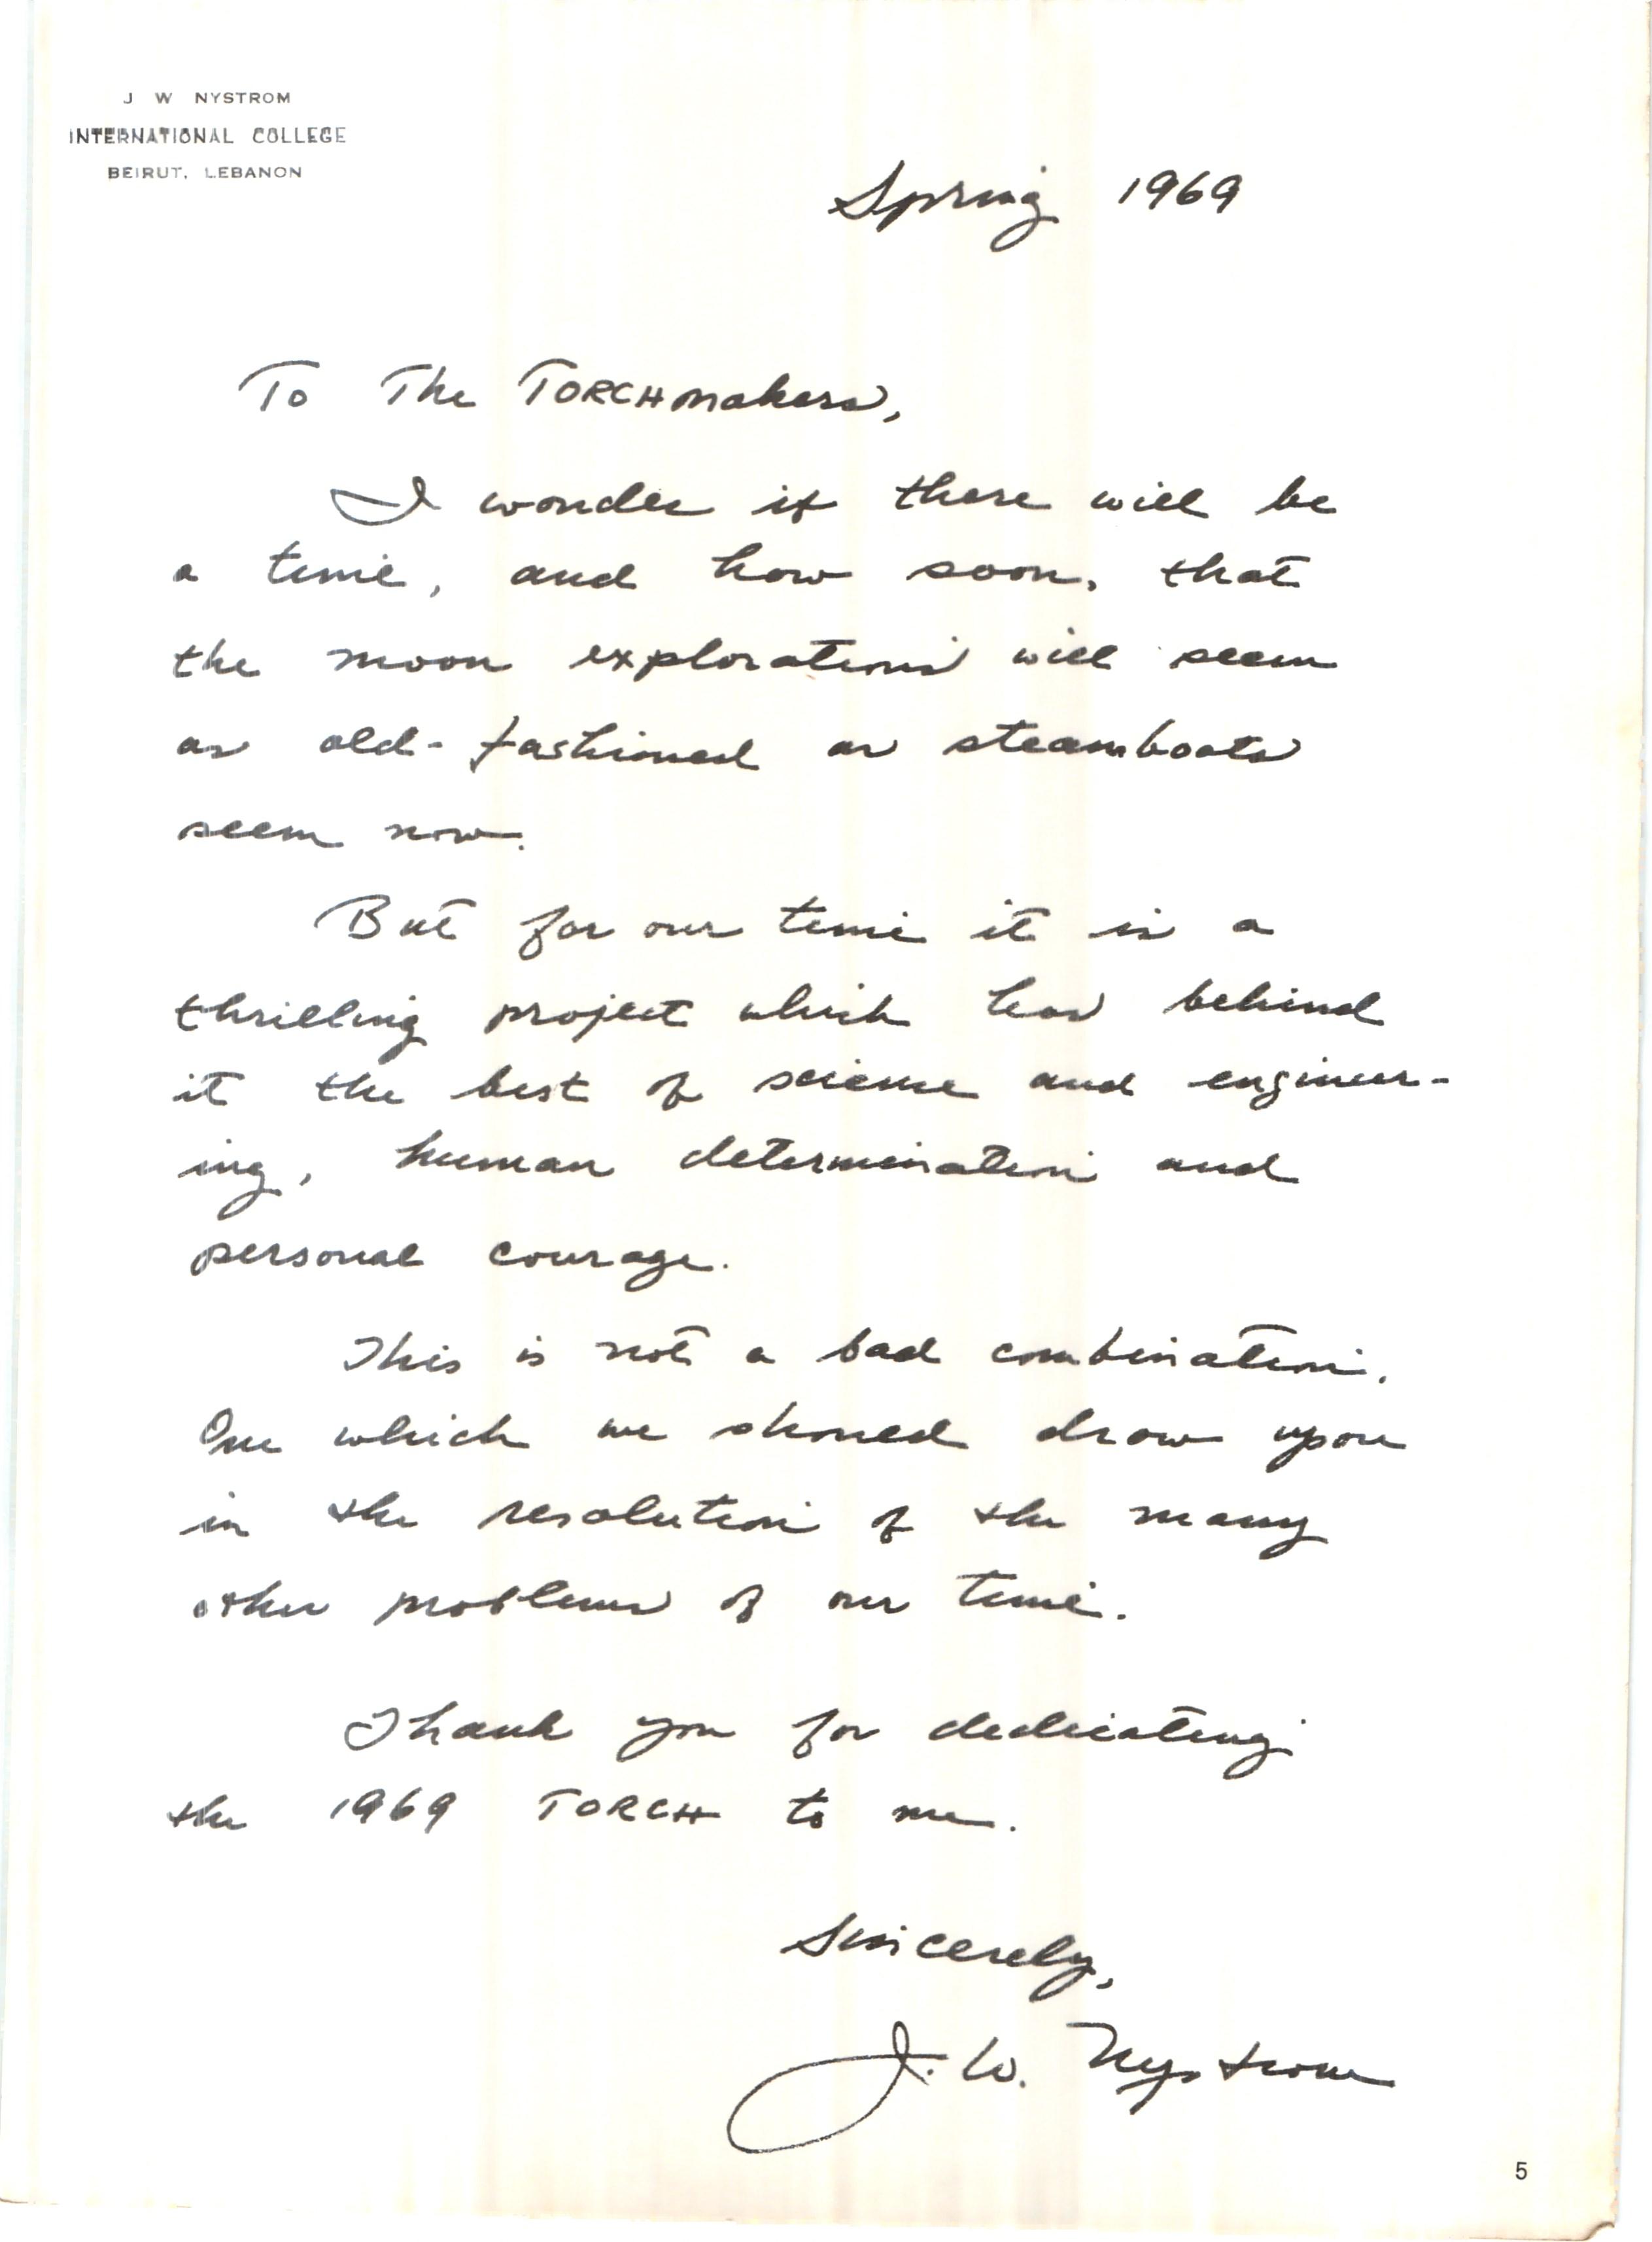 J W NYSTROM
INTERNATIONAL COLLEGE
BEIRUT, LEBANON
Spring 1969
To The TORCHmakers,
I wonder if there will be
a time, and how soon, that
the moon explorations will seem
as old-fashioned as steamboats
seem now.
But for our time it is a
thrilling project which has behind
it the best of science and engineer-
ing, human determination and
personal courage.
This is not a bad combination.
One which we should draw upon
in the resolution of the many
other problems of our time.
Thank you for dedicating
the 1969 TORCH to me.
Sincerely,
J. W. Nystrom
5